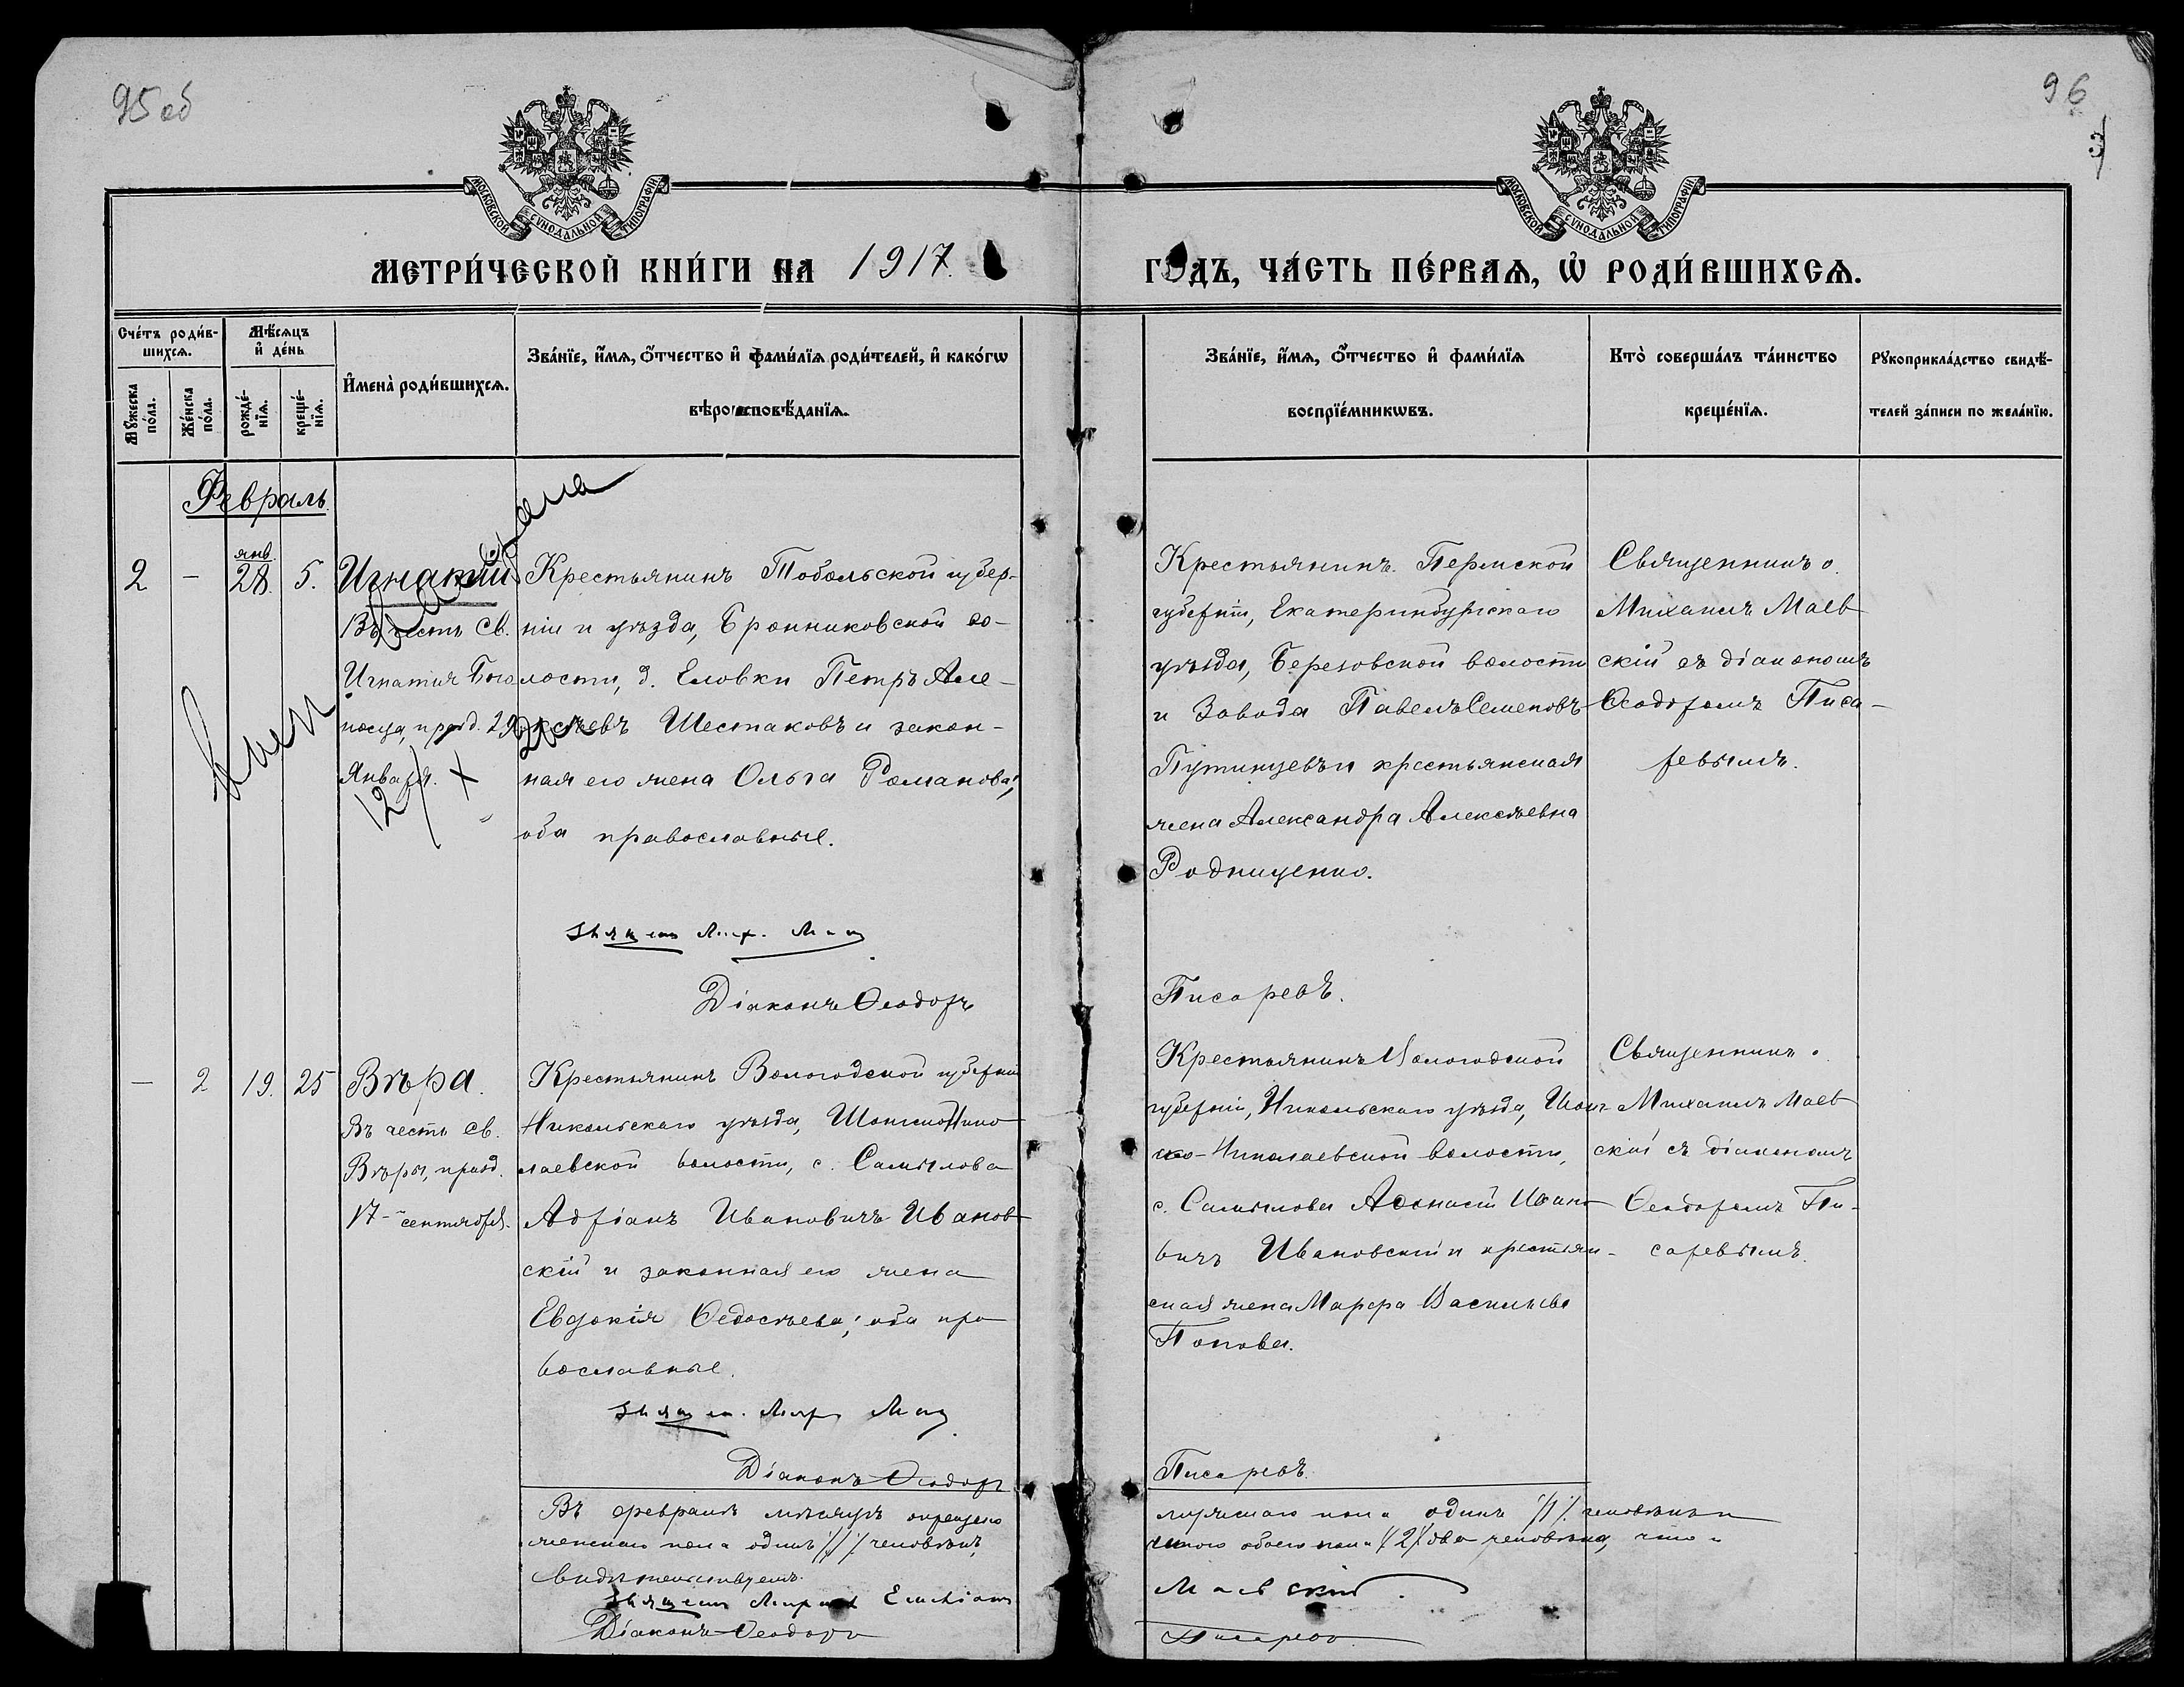 95об
96
3
МОСКОВСКОЙ СѴНОДАЛЬНОЙ ТИПОГРАФІИ
МОСКОВСКОЙ СѴНОДАЛЬНОЙ ТИПОГРАФІИ
МЕТРИ́ЧЕСКОЙ КНИ́ГИ НА 1917.
ГОДЪ, ЧА́СТЬ ПЕ́РВАѦ, Ѽ РОДИ́ВШИХСѦ.
Сче́тъ роди́в-
шихсѧ.
Мꙋ́жеска по́ла.
Же́нска по́ла.
Мѣ́сѧцъ
и҆ де́нь
рожде́-
нїѧ.
креще́-
нїѧ.
И҆мена̀ роди́вшихсѧ.
Зва́нїе, и҆́мѧ, ѻ҆́тчество и҆ фами́лїѧ роди́телей, и҆ како́гѡ
вѣроисповѣ́данїѧ.
Зва́нїе, и҆́мѧ, ѻ҆́тчество и҆ фами́лїѧ
воспрїе́мникѡвъ.
Кто̀ соверша́лъ та́инство
креще́нїѧ.
Рꙋкоприкла́дство свидѣ́-
телей за́писи по жела́нїю.
Февраль.
2
—
янв.
28.
5.
Игнатій
Въ честь св.
Игнатія Бого
носца, празд. 29
Января.
12
Крестьянинъ Тобольской губер-
ніи и уѣзда, Бронниковской во-
лости, д. Еловки Петръ Але-
ксѣевъ Шестаковъ и закон-
ная его жена Ольга Романова;
оба православные.
Священ. Мих. 
Діаконъ Ѳеодоръ
Крестьянинъ Пермской
губерніи, Екатеринбургскаго
уѣзда, Березовской волости
и Завода Павелъ Семеновъ
Путинцевъ и крестьянская
жена Александра Алексѣевна
Родниценко.
Писаревъ.
Священникъ о.
Михаилъ Маев
скій съ діакономъ
Ѳеодоромъ Писа-
ревымъ.
—
2
19.
25
Вѣра.
Въ честь св.
Вѣры, празд.
17-сентября.
Крестьянинъ Вологодской губерніи
Никольскаго уѣзда, Шонгско Нико
лаевской волости, с. Самылова
Адріанъ Ивановичъ Иванов
скій и законная его жена
Евдокія Ѳедосѣева; оба пра
вославные.
Священ. Мих. 
Діаконъ Ѳеодоръ
Крестьянинъ Вологодской
губерніи, Никольскаго уѣзда, Шонг
ско-Николаевской волости,
с. Самылова Аѳонасій Ивано
вичъ Ивановскій и крестьян-
ская жена Марфа Васильева
Попова.
Писаревъ.
Священникъ о.
Михаилъ Маев
скій съ діакономъ
Ѳеодоромъ Пи-
саревымъ.
Въ февралѣ мѣсяцѣ окрещено
мужскаго пола одинъ /1/ человѣкъ и
женскаго пола одинъ /1/ человѣкъ,
обоего пола /2/ два человѣка, что и
видѣтельствуемъ.
Священ. Михаилъ
Маевскій.
Діаконъ Ѳеодоръ
Писаревъ.